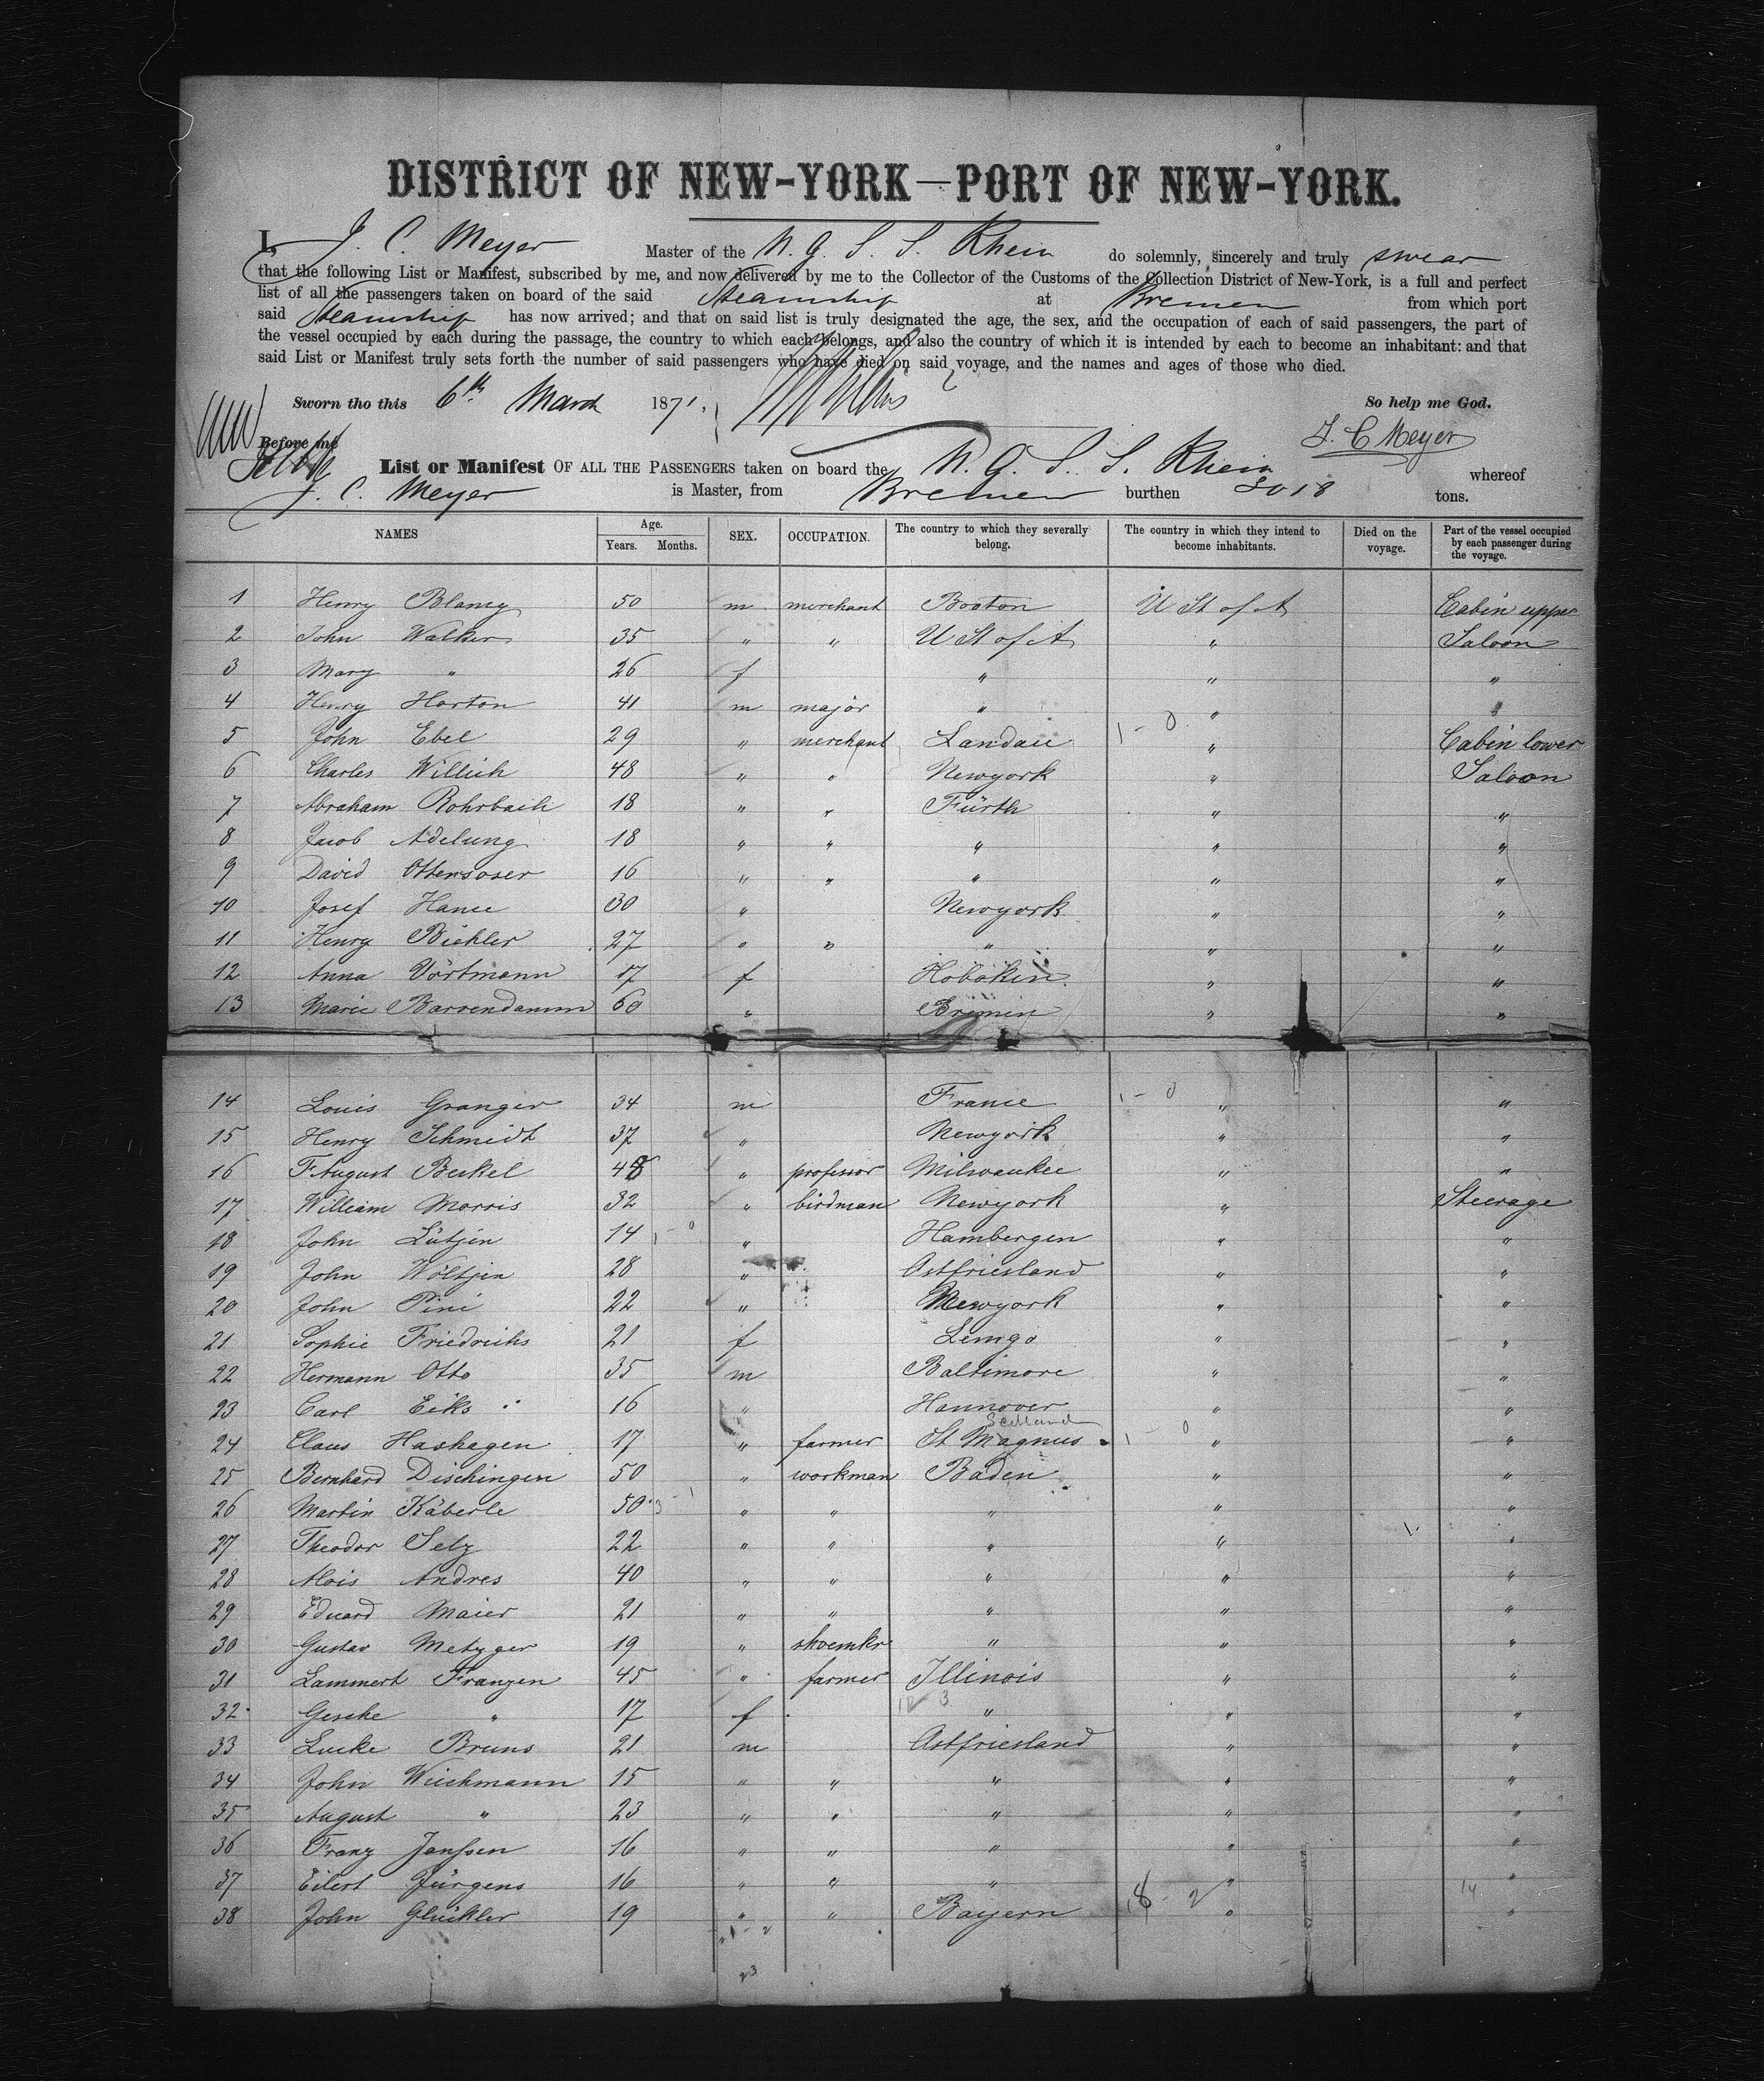 DISTRICT OF NEW-YORK—PORT OF NEW-YORK.
I, J. C. Meyer Master of the N. G. S. S. Rhein do solemnly, sincerely and truly swear
that the following List or Manifest, subscribed by me, and now delivered by me to the Collector of the Customs of the Collection District of New-York, is a full and perfect
list of all the passengers taken on board of the said Steamship at Bremen from which port
said Steamship has now arrived; and that on said list is truly designated the age, the sex, and the occupation of each of said passengers, the part of
the vessel occupied by each during the passage, the country to which each belongs, and also the country of which it is intended by each to become an inhabitant: and that
said List or Manifest truly sets forth the number of said passengers who have died on said voyage, and the names and ages of those who died.
Sworn tho this 6th March 1871. So help me God.
Before me J. C. Meyer
List or Manifest OF ALL THE PASSENGERS taken on board the N. G. S. S. Rhein whereof
J. C. Meyer is Master, from Bremen burthen 3018 tons.
NAMES Age. Years. Months. SEX. OCCUPATION. The country to which they severally belong. The country in which they intend to become inhabitants. Died on the voyage. Part of the vessel occupied by each passenger during the voyage.
1 Henry Blamy 50 m merchant Boston U St of A Cabin upper
2 John Walker 35 " " U St of A " Saloon
3 Mary " 26 f " " "
4 Henry Horton 41 m major " " "
5 John Ebel 29 " merchant Landau 1 - 0 " Cabin lower
6 Charles Willich 48 " " Newyork " Saloon
7 Abraham Rohrbach 18 " " Fürth " "
8 Jacob Adelung 18 " " " " "
9 David Ottensoser 16 " " " " "
10 Josef Hance 30 " Newyork " "
11 Henry Bichler 27 " " " " "
12 Anna Vörtmann 17 f Hoboken " "
13 Marie Barrendamm 60 " Bremen " "
14 Louis Granger 34 m France 1 - 0 " "
15 Henry Schmidt 37 " Newyork " "
16 F August Beckel 48 " professor Milwaukee " "
17 William Morris 32 " birdman Newyork " Steerage
18 John Lütjen 14 1 - 0 " Hambergen " "
19 John Wöltjen 28 " Ostfriesland " "
20 John Pini 22 " Newyork " "
21 Sophie Friedrichs 21 f Lemgo " "
22 Hermann Otto 35 m Baltimore " "
23 Carl Eiks 16 " Hannover " "
24 Claus Hashagen 17 " farmer St Magnus 1 - 0 " "
25 Bernhard Dischingen 50 " workman Baden " "
26 Martin Käberle 50 3 - 1 " " " " "
27 Theodor Selz 22 " " " " "
28 Alois Andres 40 " " " " "
29 Eduard Maier 21 " " " " "
30 Gustav Metzger 19 " shoemkr " " "
31 Lammert Franzen 45 " farmer Illinois " "
32 Gesche " 17 f " " "
33 Lucke Bruns 21 m Ostfriesland " "
34 John Wiechmann 15 " " " " "
35 August " 23 " " " " "
36 Franz Janssen 16 " " " " "
37 Eilert Jürgens 16 " " " " "
38 John Glückler 19 " " Bayern 8 - 2 " "